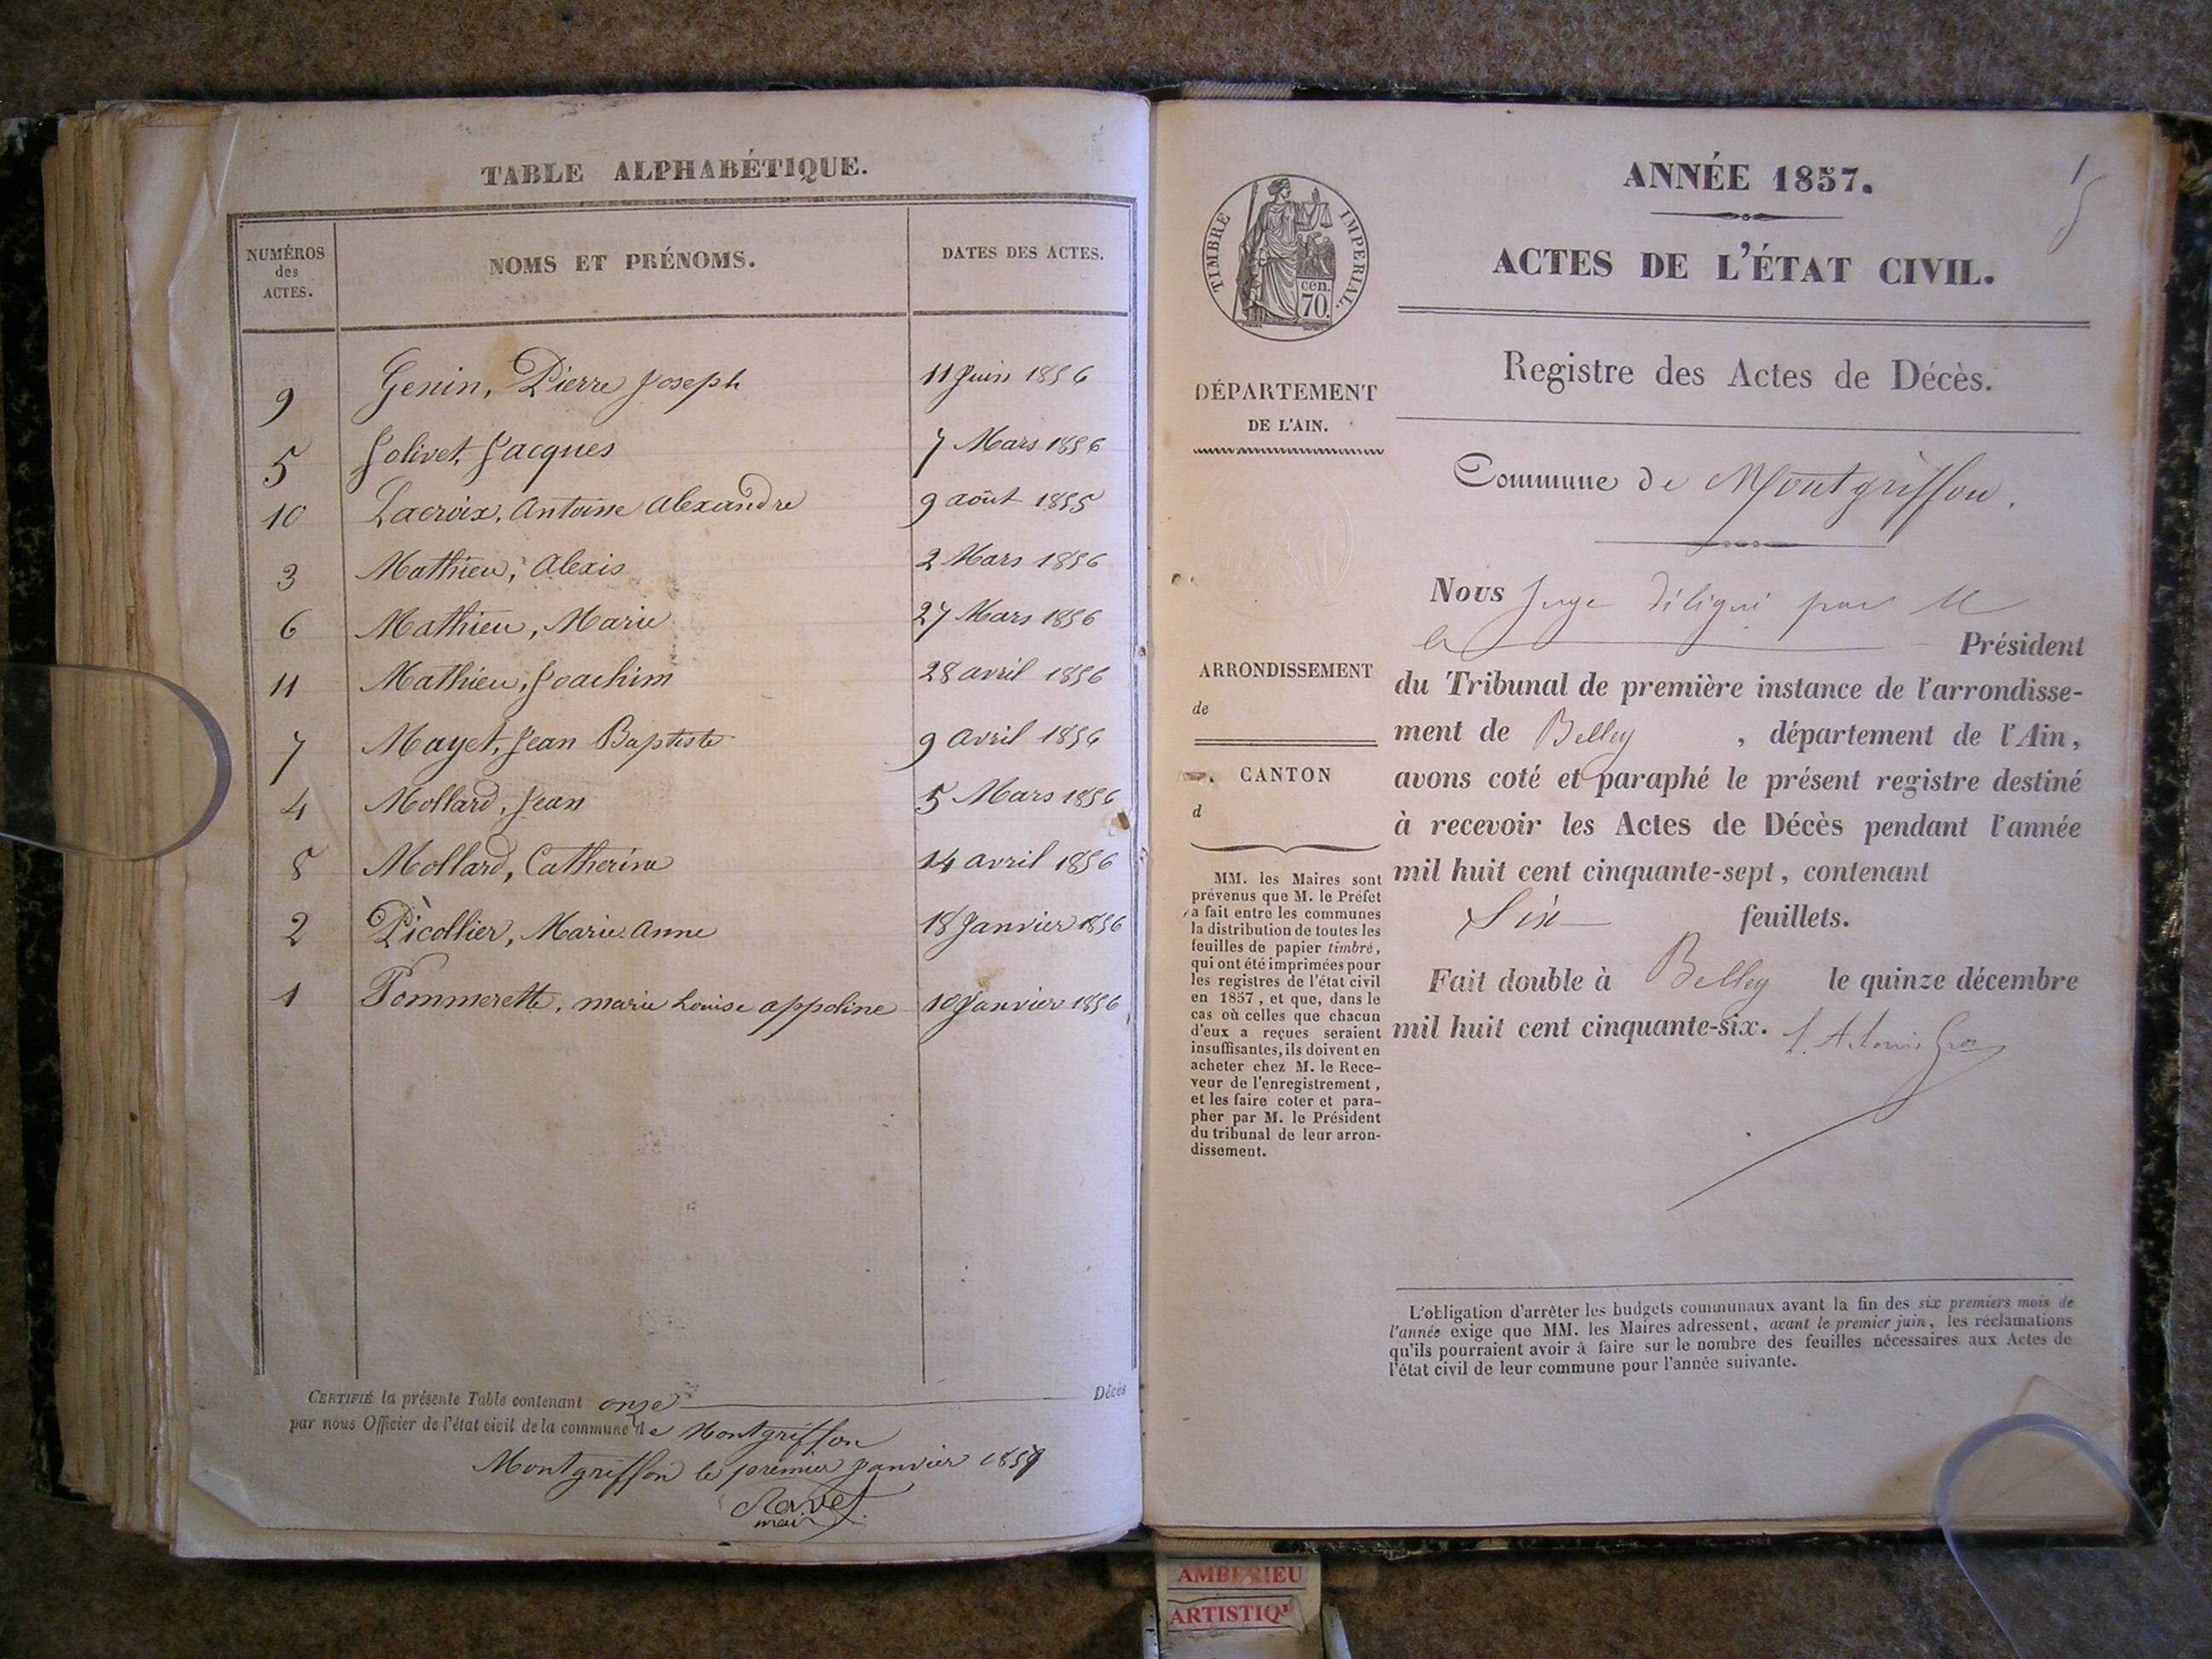 TABLE ALPHABÉTIQUE.
NUMÉROS des ACTES. NOMS ET PRÉNOMS. DATES DES ACTES.
9 Genin, Pierre Joseph 11 Juin 1856
5 Jolivet, Jacques 7 Mars 1856
10 Lacroix, Antoine Alexandre 9 août 1855
3 Mathieu, Alexis 2 Mars 1856
6 Mathieu, Marie 27 Mars 1856
11 Mathieu, Joachim 28 avril 1856
7 Mayet, Jean Baptiste 9 avril 1856
4 Mollard, Jean 5 Mars 1856
8 Mollard, Catherine 14 avril 1856
2 Picollier, Marie Anne 18 Janvier 1856
1 Pommerette, marie Louise appoline 10 Janvier 1856
CERTIFIÉ la présente Table contenant onze Décès
par nous Officier de l'état civil de la commune de Montgriffon
Montgriffon le premier Janvier 1857
maire
TIMBRE IMPERIAL.
cen.
70.
DÉPARTEMENT
DE L'AIN.
ARRONDISSEMENT
de
CANTON
d
MM. les Maires sont
prévenus que M. le Préfet
a fait entre les communes
la distribution de toutes les
feuilles de papier timbré,
qui ont été imprimées pour
les registres de l'état civil
en 1857, et que, dans le
cas où celles que chacun
d'eux a reçues seraient
insuffisantes, ils doivent en
acheter chez M. le Rece-
veur de l'enregistrement,
et les faire coter et para-
pher par M. le Président
du tribunal de leur arron-
dissement.
ANNÉE 1857.
ACTES DE L'ÉTAT CIVIL.
Registre des Actes de Décès.
Commune de Montgriffon.
Nous Juge délégué par M
le Président
du Tribunal de première instance de l'arrondisse-
ment de Belley, département de l'Ain,
avons coté et paraphé le présent registre destiné
à recevoir les Actes de Décès pendant l'année
mil huit cent cinquante-sept, contenant
Six feuillets.
Fait double à Belley le quinze décembre
mil huit cent cinquante-six.
L'obligation d'arrêter les budgets communaux avant la fin des six premiers mois de
l'année exige que MM. les Maires adressent, avant le premier juin, les réclamations
qu'ils pourraient avoir à faire sur le nombre des feuilles nécessaires aux Actes de
l'état civil de leur commune pour l'année suivante.
AMBERIEU
ARTISTIQ